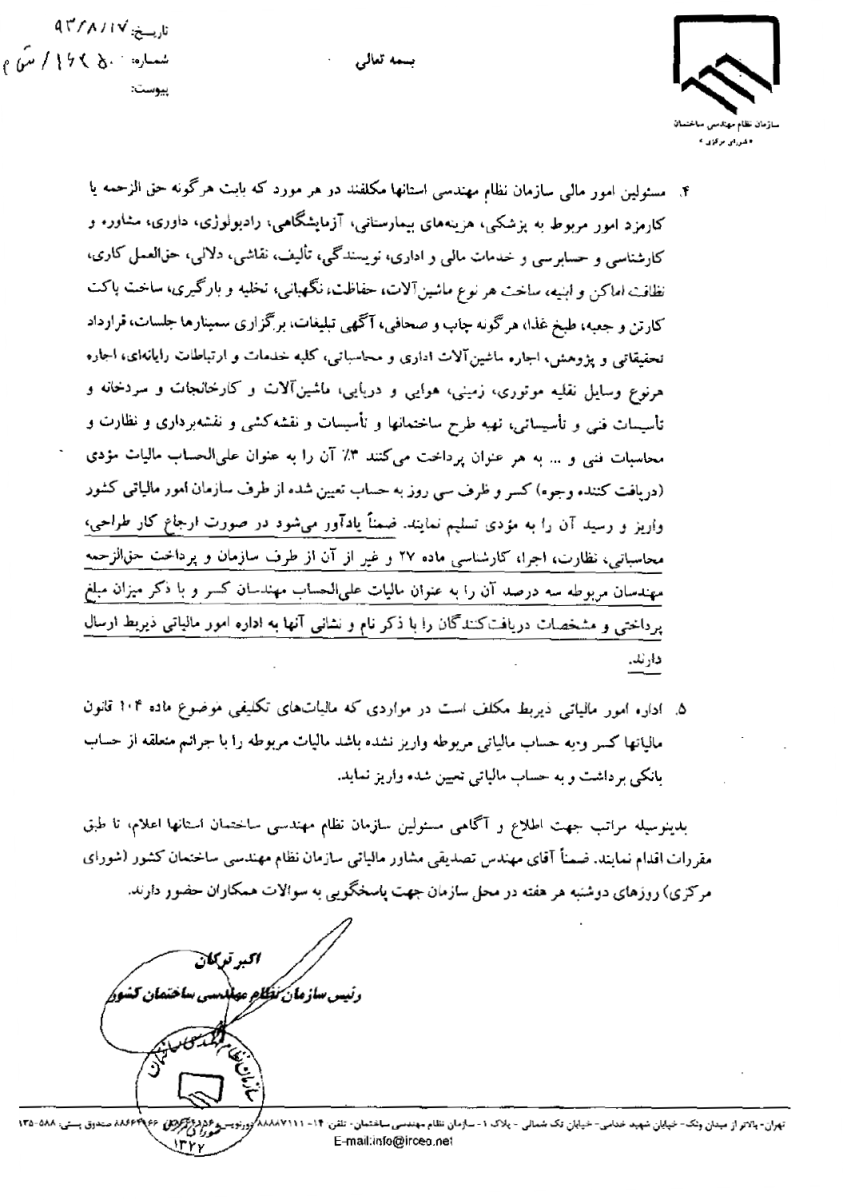 تاریـخ: ۹۳/۸/۱۷
شمـاره:
پیوست:
بسمه تعالی
سازمان نظام مهندسی ساختمان
«شورای مرکزی»
۴. مسئولین امور مالی سازمان نظام مهندسی استانها مکلفند در هر مورد که بابت هرگونه حق الزحمه یا
کارمزد امور مربوط به پزشکی، هزینه‌های بیمارستانی، آزمایشگاهی، رادیولوژی، داوری، مشاوره و
کارشناسی و حسابرسی و خدمات مالی و اداری، نویسندگی، تألیف، نقاشی، دلالی، حق‌العمل کاری،
نظافت اماکن و ابنیه، ساخت هر نوع ماشین‌آلات، حفاظت، نگهبانی، تخلیه و بارگیری، ساخت پاکت
کارتن و جعبه، طبخ غذا، هرگونه چاپ و صحافی، آگهی تبلیغات، برگزاری سمینارها جلسات، قرارداد
تحقیقاتی و پژوهش، اجاره ماشین‌آلات اداری و محاسباتی، کلیه خدمات و ارتباطات رایانه‌ای، اجاره
هرنوع وسایل نقلیه موتوری، زمینی، هوایی و دریایی، ماشین‌آلات و کارخانجات و سردخانه و
تأسیسات فنی و تأسیساتی، تهیه طرح ساختمانها و تأسیسات و نقشه‌کشی و نقشه‌برداری و نظارت و
محاسبات فنی و ... به هر عنوان پرداخت می‌کنند ۳٪ آن را به عنوان علی‌الحساب مالیات مؤدی
(دریافت کننده وجوه) کسر و ظرف سی روز به حساب تعیین شده از طرف سازمان امور مالیاتی کشور
واریز و رسید آن را به مؤدی تسلیم نمایند. ضمناً یادآور می‌شود در صورت ارجاع کار طراحی،
محاسباتی، نظارت، اجرا، کارشناسی ماده ۲۷ و غیر از آن از طرف سازمان و پرداخت حق‌الزحمه
مهندسان مربوطه سه درصد آن را به عنوان مالیات علی‌الحساب مهندسان کسر و با ذکر میزان مبلغ
پرداختی و مشخصات دریافت‌کنندگان را با ذکر نام و نشانی آنها به اداره امور مالیاتی ذیربط ارسال
دارند.
۵. اداره امور مالیاتی ذیربط مکلف است در مواردی که مالیات‌های تکلیفی موضوع ماده ۱۰۴ قانون
مالیاتها کسر و به حساب مالیاتی مربوطه واریز نشده باشد مالیات مربوطه را با جرائم متعلقه از حساب
بانکی برداشت و به حساب مالیاتی تعیین شده واریز نماید.
بدینوسیله مراتب جهت اطلاع و آگاهی مسئولین سازمان نظام مهندسی ساختمان استانها اعلام، تا طبق
مقررات اقدام نمایند. ضمناً آقای مهندس تصدیقی مشاور مالیاتی سازمان نظام مهندسی ساختمان کشور (شورای
مرکزی) روزهای دوشنبه هر هفته در محل سازمان جهت پاسخگویی به سوالات همکاران حضور دارند.
اکبر ترکان
رئیس سازمان نظام مهندسی ساختمان کشور
سازمان نظام مهندسی ساختمان
شورای مرکزی
تهران- بالاتر از میدان ونک- خیابان شهید خدامی- خیابان تک شمالی - پلاک ۱- سازمان نظام مهندسی ساختمان- تلفن: ۱۴- ۸۸۸۸۷۱۱۱ دورنویس صندوق پستی: ۵۸۸-۱۳۵
E-mail:info@irceo.net